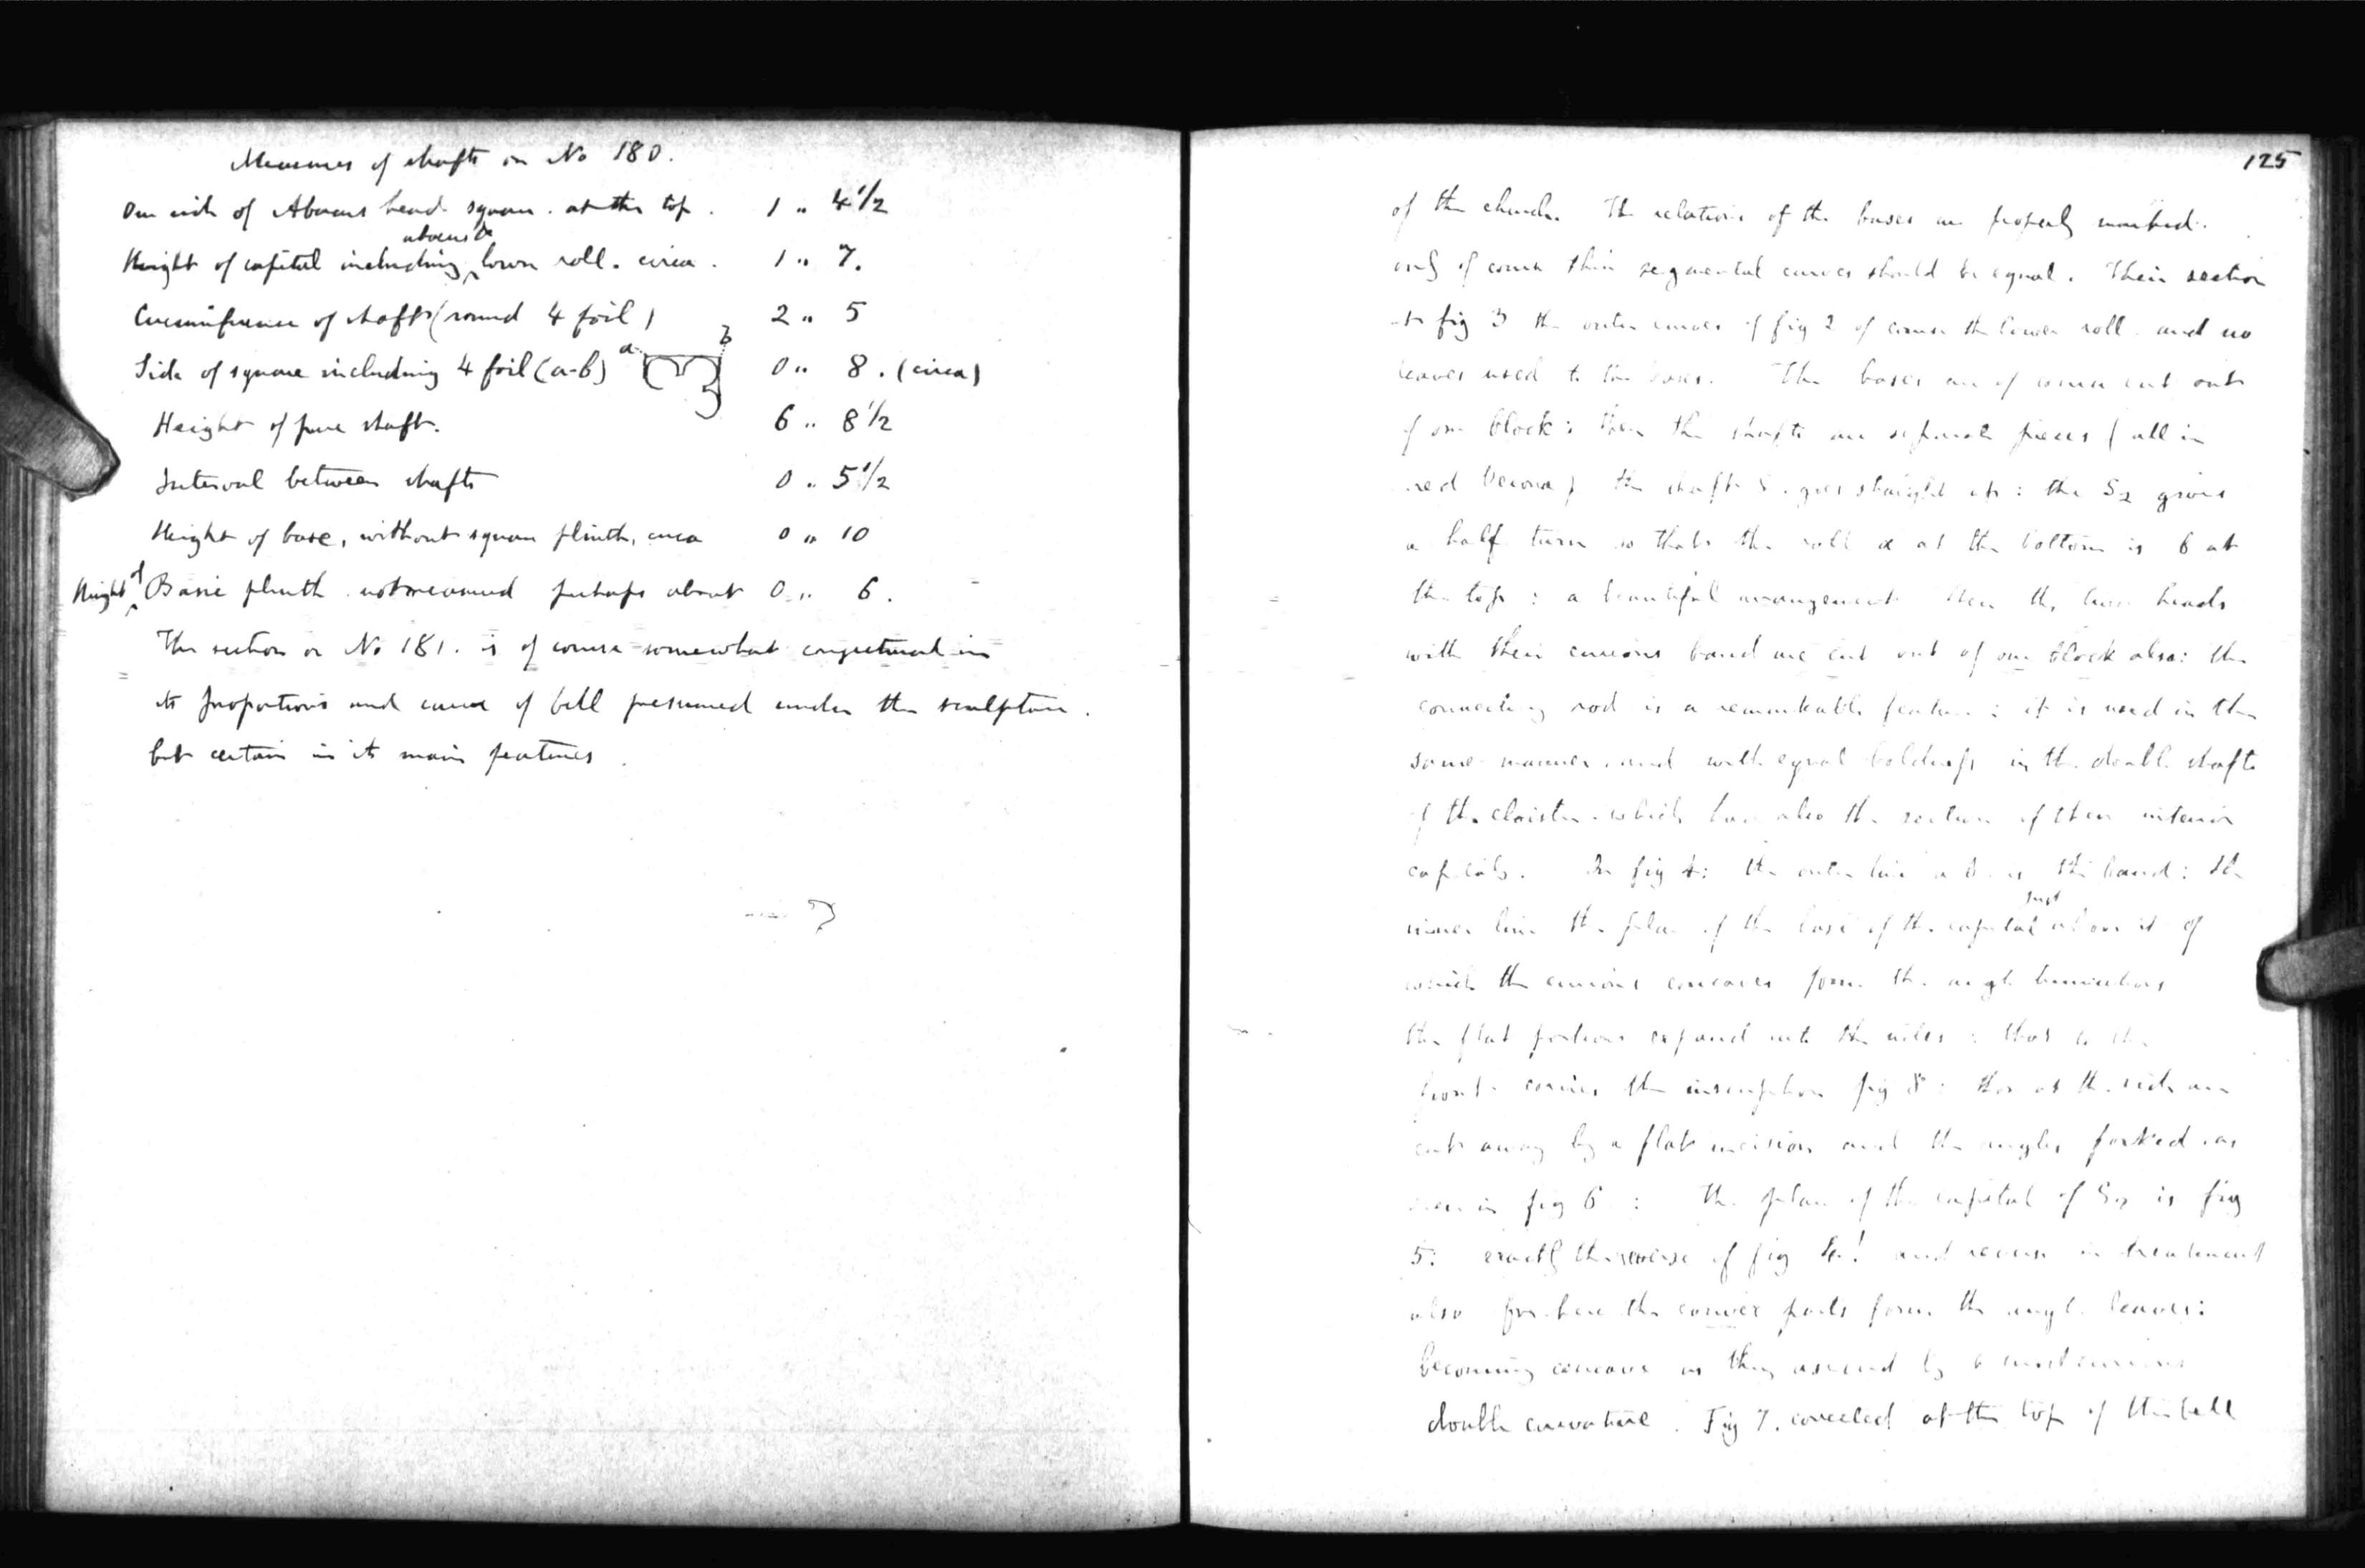 Measures of shafts in No 180.
One side of Abacus head square. at the top. 1 " 4 1/2
abacus &
Height of capital including lower roll. circa. 1 " 7.
Circumference of shaft (round 4 foil) 2 " 5
Side of square including 4 foil (a-b) a b 0 " 8. (circa)
Height of pure shaft. 6 " 8 1/2
Interval between shafts 0 " 5 1/2
Height of base, without square plinth, circa 0 " 10
Height of Basic plinth not measured perhaps about 0 " 6.
The section on No 181. is of course somewhat conjectural in
its proportions and curve of bell presumed under the sculpture.
but certain in its main features.
125
of the church. The relations of the bases are properly marked.
only of course their segmental curves should be equal. Their section
is fig 3 the outer curves of fig 2 of course the lower roll. and no
leaves used to the bases. The bases are of course cut out
of one block: then the shafts are separate pieces (all in
red Verona) the shaft S. goes straight up: the S2 gives
a half turn so that the roll a at the bottom is b at
the top: a beautiful arrangement. Then the two heads
with their curious band are cut out of one block also: the
connecting rod is a remarkable feature: it is used in the
same manner. and with equal boldness in the double shafts
of the cloister. which have also the section of their interior
capitals. In fig 4: the outer line a b. is the band: the
just
inner line the plan of the base of the capital above it of
which the curious concaves form the angle
the flat portions expand into the sides: that to the
front carries the inscription fig 8: those at the side are
cut away by a flat incision and the angles forked as
seen in fig 6: the plan of the capital of S2 is fig
5: exactly the reverse of fig 4! and reverse in treatment
also for here the convex parts form the angle leaves:
becoming concave as they ascend by a most curious
double curvature. Fig 7. corrected at the top of the bell